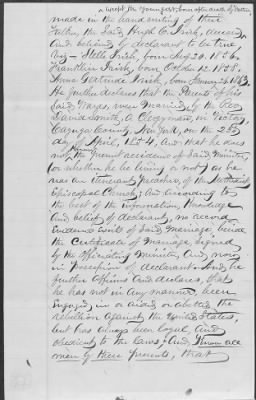 except the youngest, born
made in the handwriting of their
Father, the Said Hugh C. Irish, deceased,
And believed by declarant to be true
viz:- Stella Irish, born Aug 20, 1856,
Franklin Irish, born October 12, 1858.
Anna Gertrude Irish, born January 1863.
He further declares that the Parents of his
Said Wards, were Married, by the Rev
David Smith, a Clergyman, in Victory,
Cayuga County, New York, on the 25th
day of April, 1854. And that he does
not the present residence of Said Minister,
(or whether he be living or not) as he
was an itenerant preacher, of the Methodist
Episcopal Church; And According to
the best of the information, Knowledge
And belief of declarant, no record
Evidence exists of Said Marriage, beside
the Certificate of Marriage, signed
by the Officiating Minister, And now
in Possession of declarant. And he
further Affirms And declares, that
he has not in Any manner been
Engaged in or aided or abetted the
rebellion Against the United States,
but has always been loyal, and
obedient to the laws; And Know all
men by these Presents, that